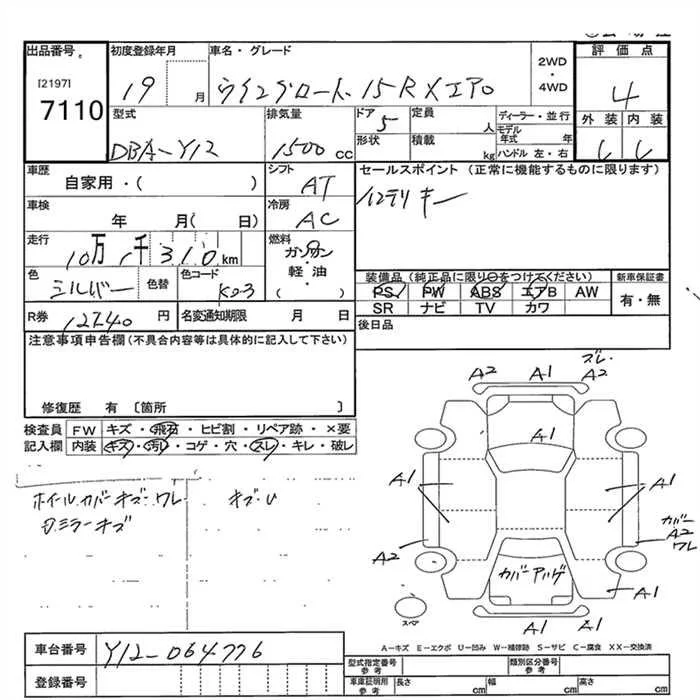 出品番号
[2197]
7110
初度登録年月
19 月
車名・グレード
ウイングロード 15RXエアロ
2WD
・
4WD
評価点
4
外装 内装
型式
DBA-Y12
排気量
1500 cc
ドア
5
形状
定員
人
積載
kg
ディーラー・並行
モデル年式 年
ハンドル 左・右
車歴
自家用・( )
シフト
AT
セールスポイント (正常に機能するものに限ります)
インテリキー
車検
年 月( 日)
冷房
AC
走行
10万 千310km
燃料
ガソリン
・
軽・油
( )
色
シルバー
色替
色コード
K23
装備品(純正品に限り○をつけてください)
PS PW ABS エアB AW
SR ナビ TV カワ
新車保証書
有・無
R券
12740円
名変通知期限 月 日
後日品
注意事項申告欄(不具合内容等は具体的に記入して下さい)
修復歴 有 〔箇所 〕
検査員
記入欄
FW キズ・飛石・ヒビ割・リペア跡・×要
内装 キズ・汚れ・コゲ・穴・スレ・キレ・破レ
ホイールカバーキズ・ワレ
キズ・U
ミラーキズ
ズレ
A2 A1 A2
A1
A1
A1
カバー
A2
ワレ
A2
カバーアハゲ
A1
スペア
A1 A1
A-キズ E-エクボ U-凹み W-補修跡 S-サビ C-腐食 XX-交換済
車台番号
Y12-064776
登録番号
型式指定番号
参考
類別区分番号
参考
車庫証明用
参考
長さ cm 幅 cm 高さ cm